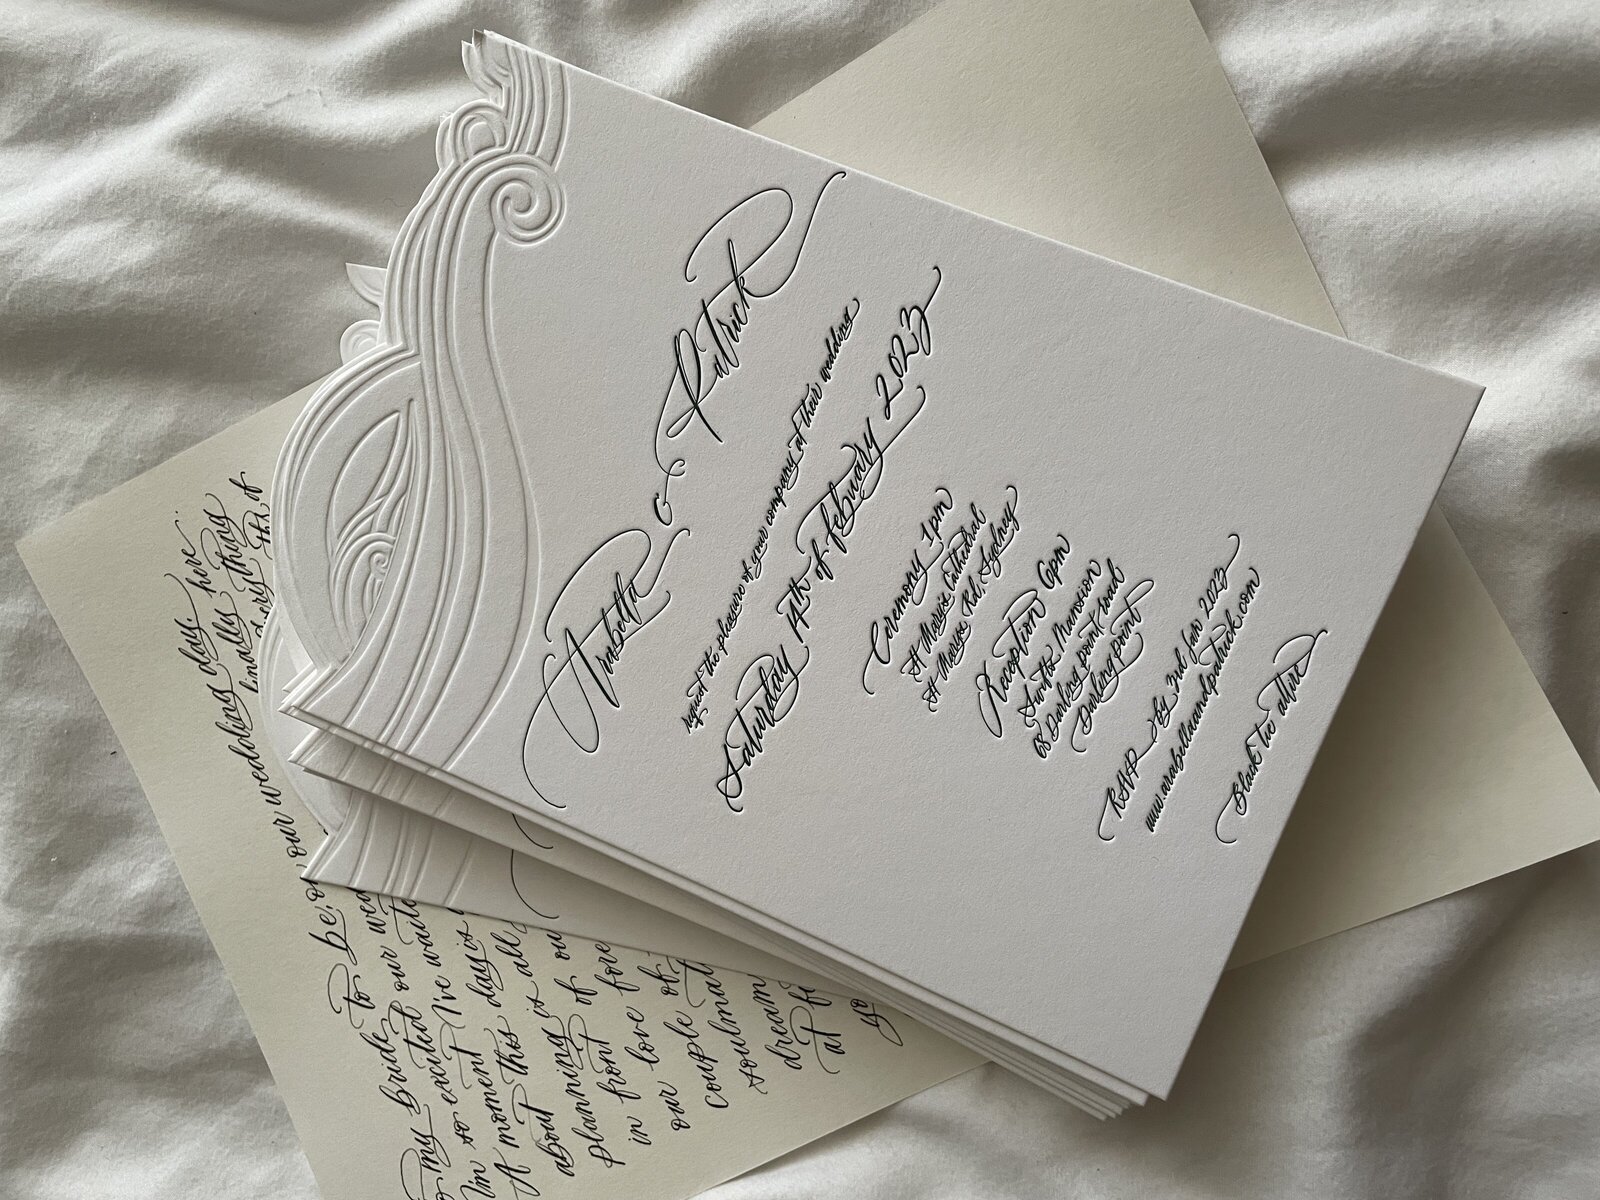 Arabella & Patrick
request the pleasure of your company at their wedding
Saturday 14th of February 2023
Ceremony 1pm
St Marys Cathedral
St Marys Rd, Sydney
Reception 6pm
Swifts Mansion
68 Darling point road
Darling point
RSVP by 3rd Jan 2023
www.arabellaandpatrick.com
Black tie attire
my bride to be, on our wedding day.
I'm so excited our here.
A moment I've thing
about this day is the of
planning is all
in front of
our love
couple of
dream
at